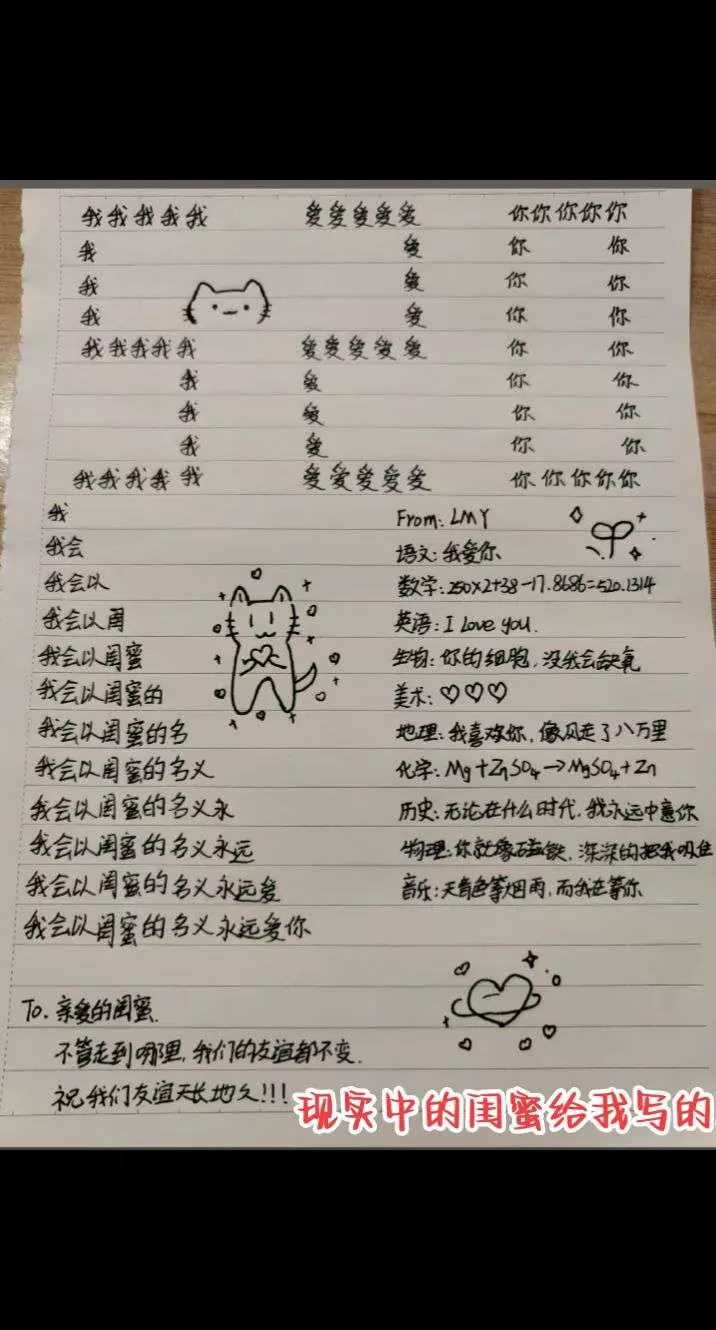 我我我我我 爱爱爱爱爱 你你你你你
我 爱 你 你
我 爱 你 你
我 爱 你 你
我我我我我 爱爱爱爱爱 你 你
我 爱 你 你
我 爱 你 你
我 爱 你 你
我我我我我 爱爱爱爱爱 你你你你你
我
我会
我会以
我会以闺
我会以闺蜜
我会以闺蜜的
我会以闺蜜的名
我会以闺蜜的名义
我会以闺蜜的名义永
我会以闺蜜的名义永远
我会以闺蜜的名义永远爱
我会以闺蜜的名义永远爱你
From: LMY
语文:我爱你
数学:250×2+38-17.8686=520.1314
英语:I Love you.
生物:你的细胞,没我会缺氧
美术:♡♡♡
地理:我喜欢你,像风走了八万里
化学:Mg+ZnSO4→MgSO4+Zn
历史:无论在什么时代,我永远中意你
物理:你就像磁铁,深深的把我吸住
音乐:天青色等烟雨,而我在等你
To.亲爱的闺蜜.
不管走到哪里,我们的友谊都不变.
祝我们友谊天长地久!!!
现实中的闺蜜给我写的